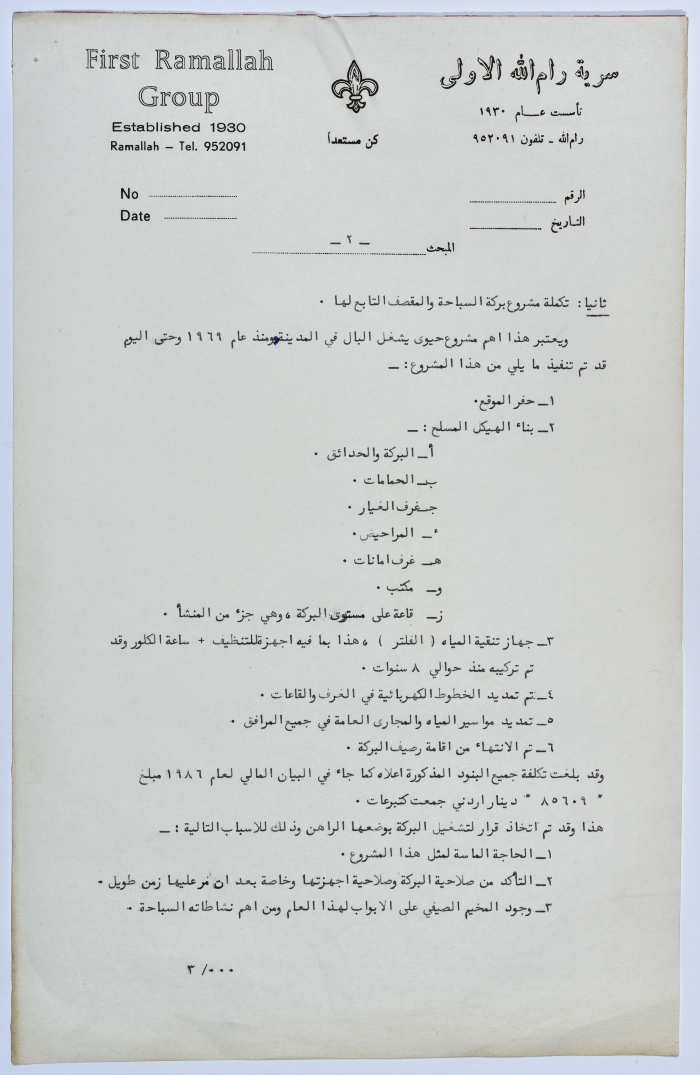 First Ramallah
Group
Established 1930
Ramallah – Tel. 952091
كن مستعداً
سرية رام الله الاولى
تأسست عـــام ١٩٣٠
رام الله ـ تلفون ٩٥٢٠٩١
No ........................
Date ........................
الرقم ........................
التاريخ ........................
المبحث ........................ ــ ٢ ــ
ثانيا: تكملة مشروع بركة السباحة والمقصف التابع لها .
ويعتبر هذا اهم مشروع حيوى يشغل البال في المدينة ومنذ عام ١٩٦٩ وحتى اليوم
قد تم تنفيذ ما يلي من هذا المشروع: ــ
١ــ حفر الموقع.
٢ــ بناء الهيكل المسلح : ــ
أــ البركة والحدائق .
بــ الحمامات .
جــ غرف الغيار .
ءــ المراحيض.
هــ غرف امانات .
وــ مكتب .
زــ قاعة على مستوى البركة ، وهي جزء من المنشأ .
٣ــ جهاز تنقية المياه ( الفلتر ) ، هذا بما فيه اجهزة للتنظيف + ساعة الكلور وقد
تم تركيبه منذ حوالي ٨ سنوات .
٤ــ تم تمديد الخطوط الكهربائية في الغرف والقاعات .
٥ــ تمديد مواسير المياه والمجارى العامة في جميع المرافق .
٦ــ تم الانتهاء من اقامة رصيف البركة .
وقد بلغت تكلفة جميع البنود المذكورة اعلاه كما جاء في البيان المالي لعام ١٩٨٦ مبلغ
" ٨٥٦٠٩ " دينار اردني جمعت كتبرعات .
هذا وقد تم اتخاذ قرار لتشغيل البركة بوضعها الراهن وذلك للاسباب التالية : ــ
١ــ الحاجة الماسة لمثل هذا المشروع .
٢ــ التأكد من صلاحية البركة وصلاحية اجهزتها وخاصة بعد ان مر عليها زمن طويل .
٣ــ وجود المخيم الصيفي على الابواب لهذا العام ومن اهم نشاطاته السباحة .
٣ /...